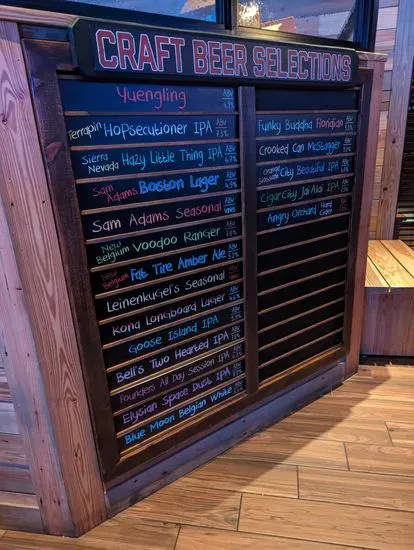 CRAFT BEER SELECTIONS
Yuengling ABV
Terrapin Hopsecutioner IPA ABV 7.3%
Sierra Nevada Hazy Little Thing IPA ABV
Sam Adams Boston Lager ABV
Sam Adams Seasonal ABV
New Belgium Voodoo Ranger ABV
New Belgium Fat Tire Amber Ale ABV
Leinenkugel's Seasonal ABV
Kona Longboard Lager ABV
Goose Island IPA ABV
Bell's Two Hearted IPA ABV
Founders All Day Session IPA ABV
Elysian Space Dust IPA ABV
Blue Moon Belgian White ABV
Funky Buddha Floridian ABV
Crooked Can McStagger ABV
Orange Blossom City Beautiful IPA ABV
Cigar City Jai Alai IPA ABV
Angry Orchard Hard Cider ABV